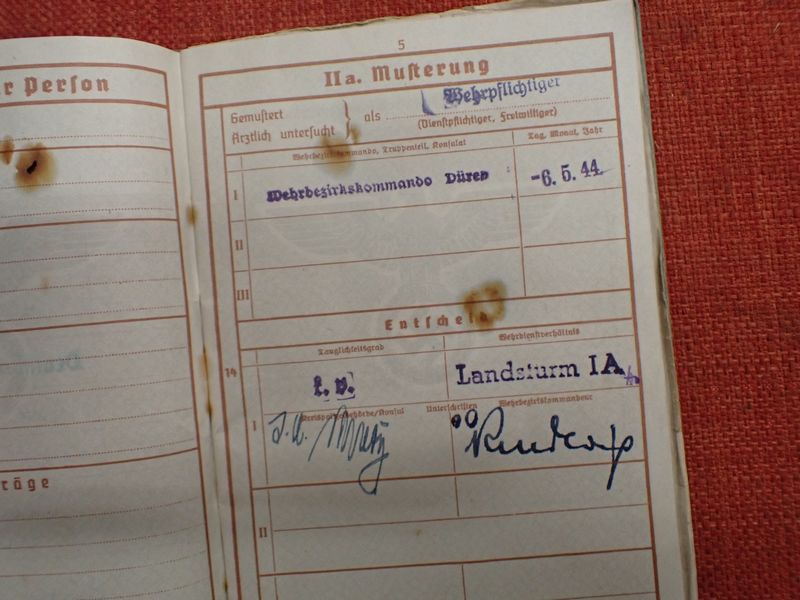 r Person
räge
5
IIa. Musterung
Gemustert
Ärztlich untersucht } als Wehrpflichtiger
(Dienstpflichtiger, Freiwilliger)
Wehrbezirkskommando, Truppenteil, Konsulat Tag, Monat, Jahr
I Wehrbezirkskommando Düren -6. 5. 44.
II
III
Entscheid
Tauglichkeitsgrad Wehrdienstverhältnis
14
k. v. Landsturm I A
I Kreispolizeibehörde/Konsul Unterschriften Wehrbezirkskommandeur
II